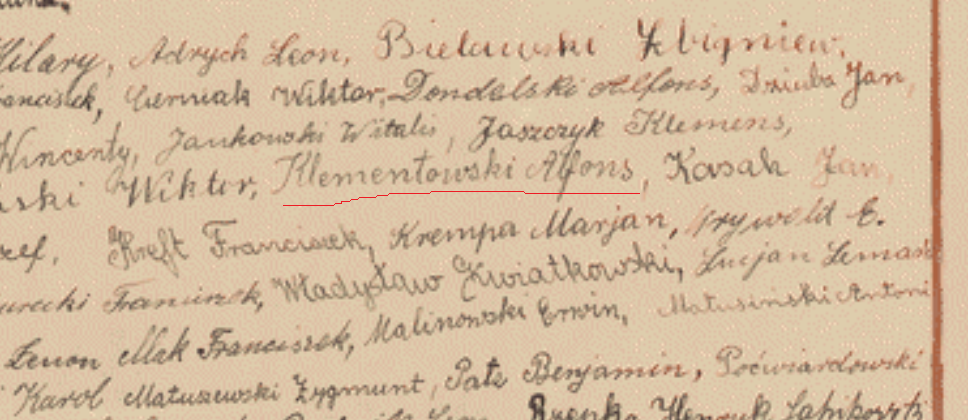 Hilary, Adrych Leon, Bielawski Zbigniew,
Franciszek, Czerniak Wiktor, Dondalski Alfons, Dziuba Jan,
Wincenty, Jankowski Witalis, Jaszczyk Klemens,
Wiktor, Klementowski Alfons, Kasak Jan,
Kreft Franciszek, Krempa Marjan, Krywold E.
Franciszek, Władysław Kwiatkowski, Lucjan
Zenon Mak Franciszek, Malinowski Erwin, Matusiński Antoni
Karol Matuszewski Zygmunt, Patz Benjamin, Poćwiardowski
Henryk